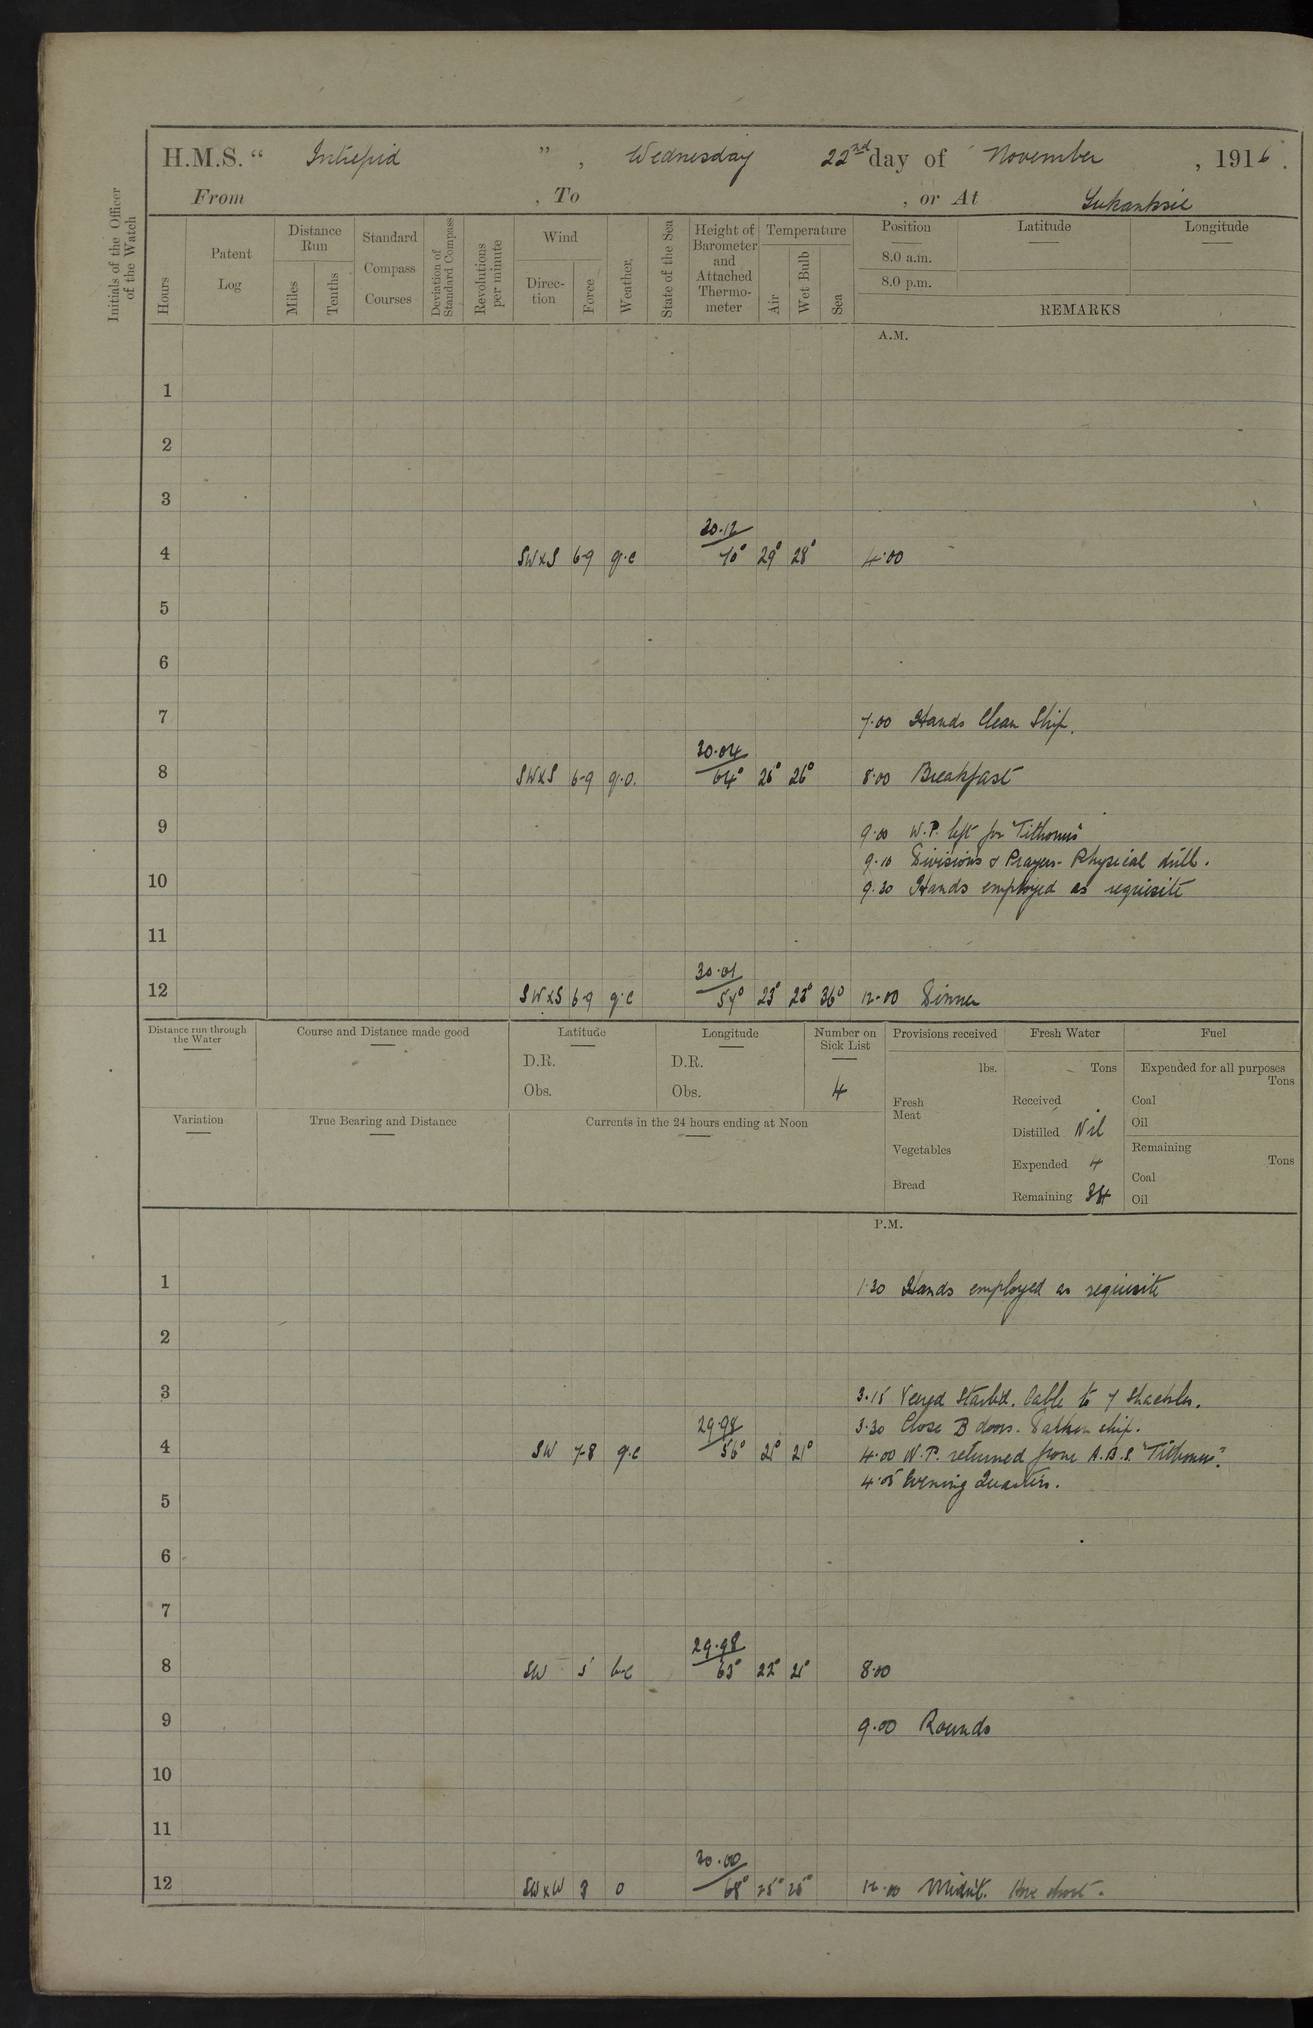 H.M.S. “ Intrepid ” , Wednesday 22nd day of November , 1916 .
From , To , or At Iukanksie
Initials of the Officer of the Watch
Hours
Patent Log
Distance Run
Miles
Tenths
Standard Compass Courses
Deviation of Standard Compass
Revolutions per minute
Wind
Direc-tion
Force
Weather.
State of the Sea
Height of Barometer and Attached Thermo-meter
Temperature
Air
Wet Bulb
Sea
Position
8.0 a.m.
8.0 p.m.
Latitude
Longitude
REMARKS
A.M.
1
2
3
30.12
4 SWxS 6-9 q.c 70° 29° 28° 4.00
5
6
7 7.00 Hands Clean Ship.
30.04
8 SWxS 6-9 q.o. 64° 26° 26° 8.00 Breakfast
9 9.00 W.P. left for "Tithonus"
9.10 Divisions & Prayers - Physical drill.
10 9.30 Hands employed as requisite
11
30.01
12 SWxS 6-9 q.c 54° 23° 23° 36° 12.00 Dinner
Distance run through the Water
Course and Distance made good
Latitude
D.R.
Obs.
Longitude
D.R.
Obs.
Number on Sick List
4
Provisions received
lbs.
Fresh Meat
Vegetables
Bread
Fresh Water
Tons
Received
Distilled Nil
Expended 4
Remaining 34
Fuel
Expended for all purposes
Tons
Coal
Oil
Remaining
Tons
Coal
Oil
Variation
True Bearing and Distance
Currents in the 24 hours ending at Noon
P.M.
1 1.30 Hands employed as requisite
2
3 3.15 Veered Starbd. Cable to 7 Shackles.
29.98 3.30 Close B doors. Darken ship.
4 SW 7-8 q.c 56° 21° 21° 4.00 W.P. returned from A.B.S. "Tithonus".
4.05 Evening Quarters.
5
6
7
29.98
8 SW 5 b.c 63° 22° 21° 8.00
9 9.00 Rounds
10
11
30.00
12 SWxW 3 o 68° 25° 25° 12.00 Midnt.